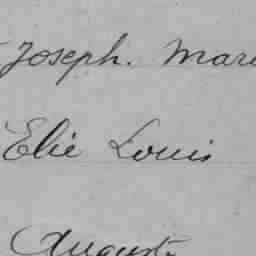 Joseph. Mari
Elie Louis
August